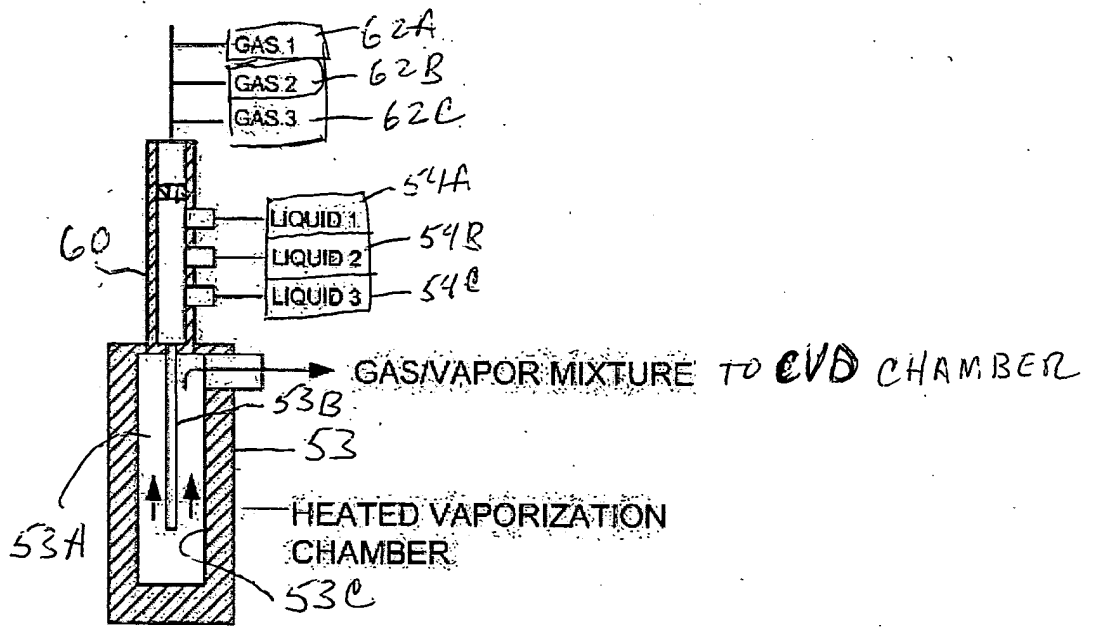 GAS 1 62A
GAS 2 62B
GAS 3 62C
54A
LIQUID 1
60
LIQUID 2 54B
LIQUID 3 54C
GAS/VAPOR MIXTURE TO CVD CHAMBER
53B
53
HEATED VAPORIZATION
CHAMBER
53A
53C